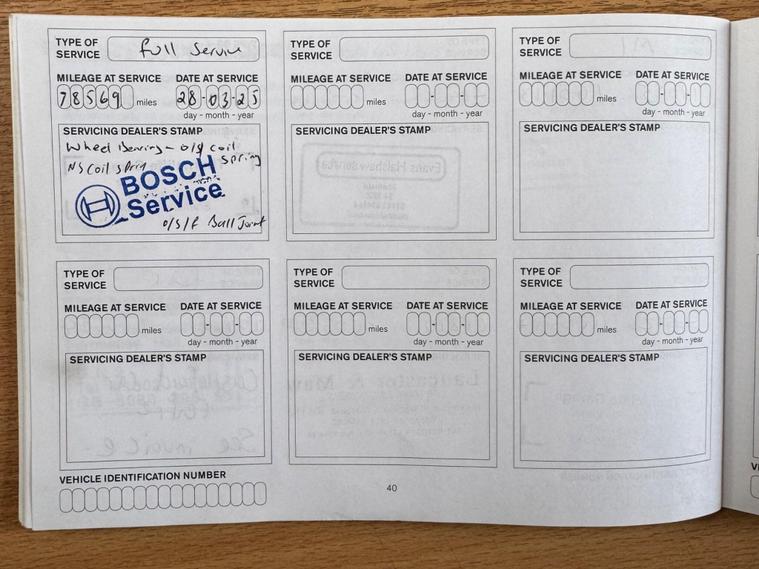 TYPE OF SERVICE full Service
MILEAGE AT SERVICE DATE AT SERVICE
78569 miles 28-03-25
day - month - year
SERVICING DEALER'S STAMP
Wheel Bearing - o/s coil
spring
NS coil spring
BOSCH
Service
o/s/f Ball Joint
TYPE OF SERVICE
MILEAGE AT SERVICE DATE AT SERVICE
miles
day - month - year
SERVICING DEALER'S STAMP
TYPE OF SERVICE
MILEAGE AT SERVICE DATE AT SERVICE
miles
day - month - year
SERVICING DEALER'S STAMP
TYPE OF SERVICE
MILEAGE AT SERVICE DATE AT SERVICE
miles
day - month - year
SERVICING DEALER'S STAMP
TYPE OF SERVICE
MILEAGE AT SERVICE DATE AT SERVICE
miles
day - month - year
SERVICING DEALER'S STAMP
TYPE OF SERVICE
MILEAGE AT SERVICE DATE AT SERVICE
miles
day - month - year
SERVICING DEALER'S STAMP
VEHICLE IDENTIFICATION NUMBER
40